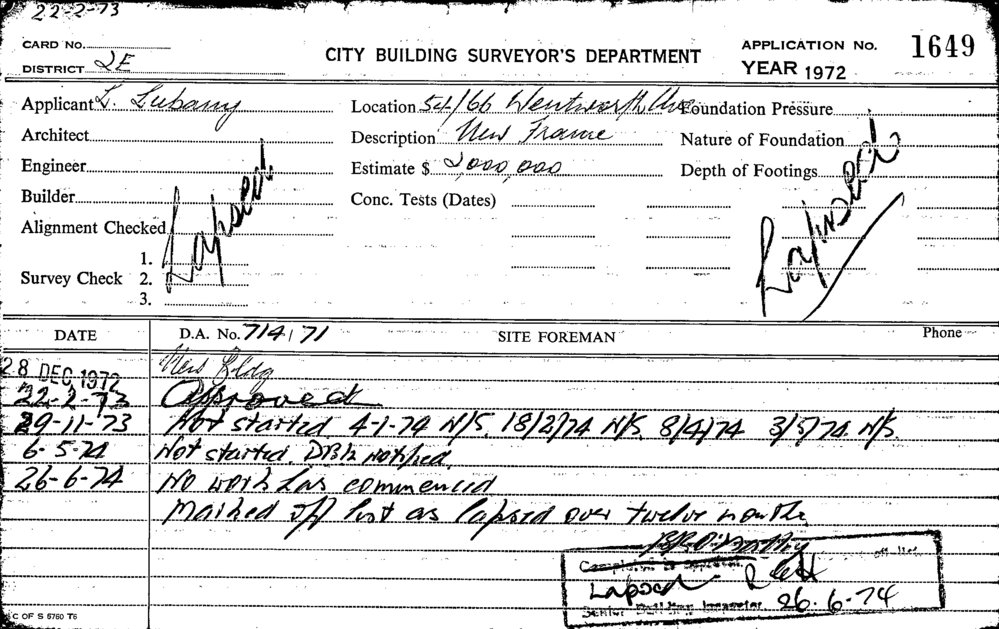 22-2-73
CARD No.
DISTRICT 2E
CITY BUILDING SURVEYOR'S DEPARTMENT
APPLICATION No. 1649
YEAR 1972
Applicant L.
Location 54/66 Wentworth Ave
Foundation Pressure
Architect
Description New Frame
Nature of Foundation
Engineer
Estimate $ 2,000,000
Depth of Footings
Builder
Conc. Tests (Dates)
Alignment Checked
Lapsed
Lapsed
Survey Check
1.
2.
3.
DATE
D.A. No. 714/71
SITE FOREMAN
Phone
28 DEC 1972 New Bldg
22-2-73 Approved
29-11-73 Not started 4-1-74 N/S. 18/2/74 N/S. 8/4/74 3/5/74 N/S.
6-5-74 Not started. notified.
26-6-74 No work has commenced
Marked off list as lapsed over twelve months
Completed
Lapsed
Senior Building Inspector 26.6.74
C OF S 5760 T6